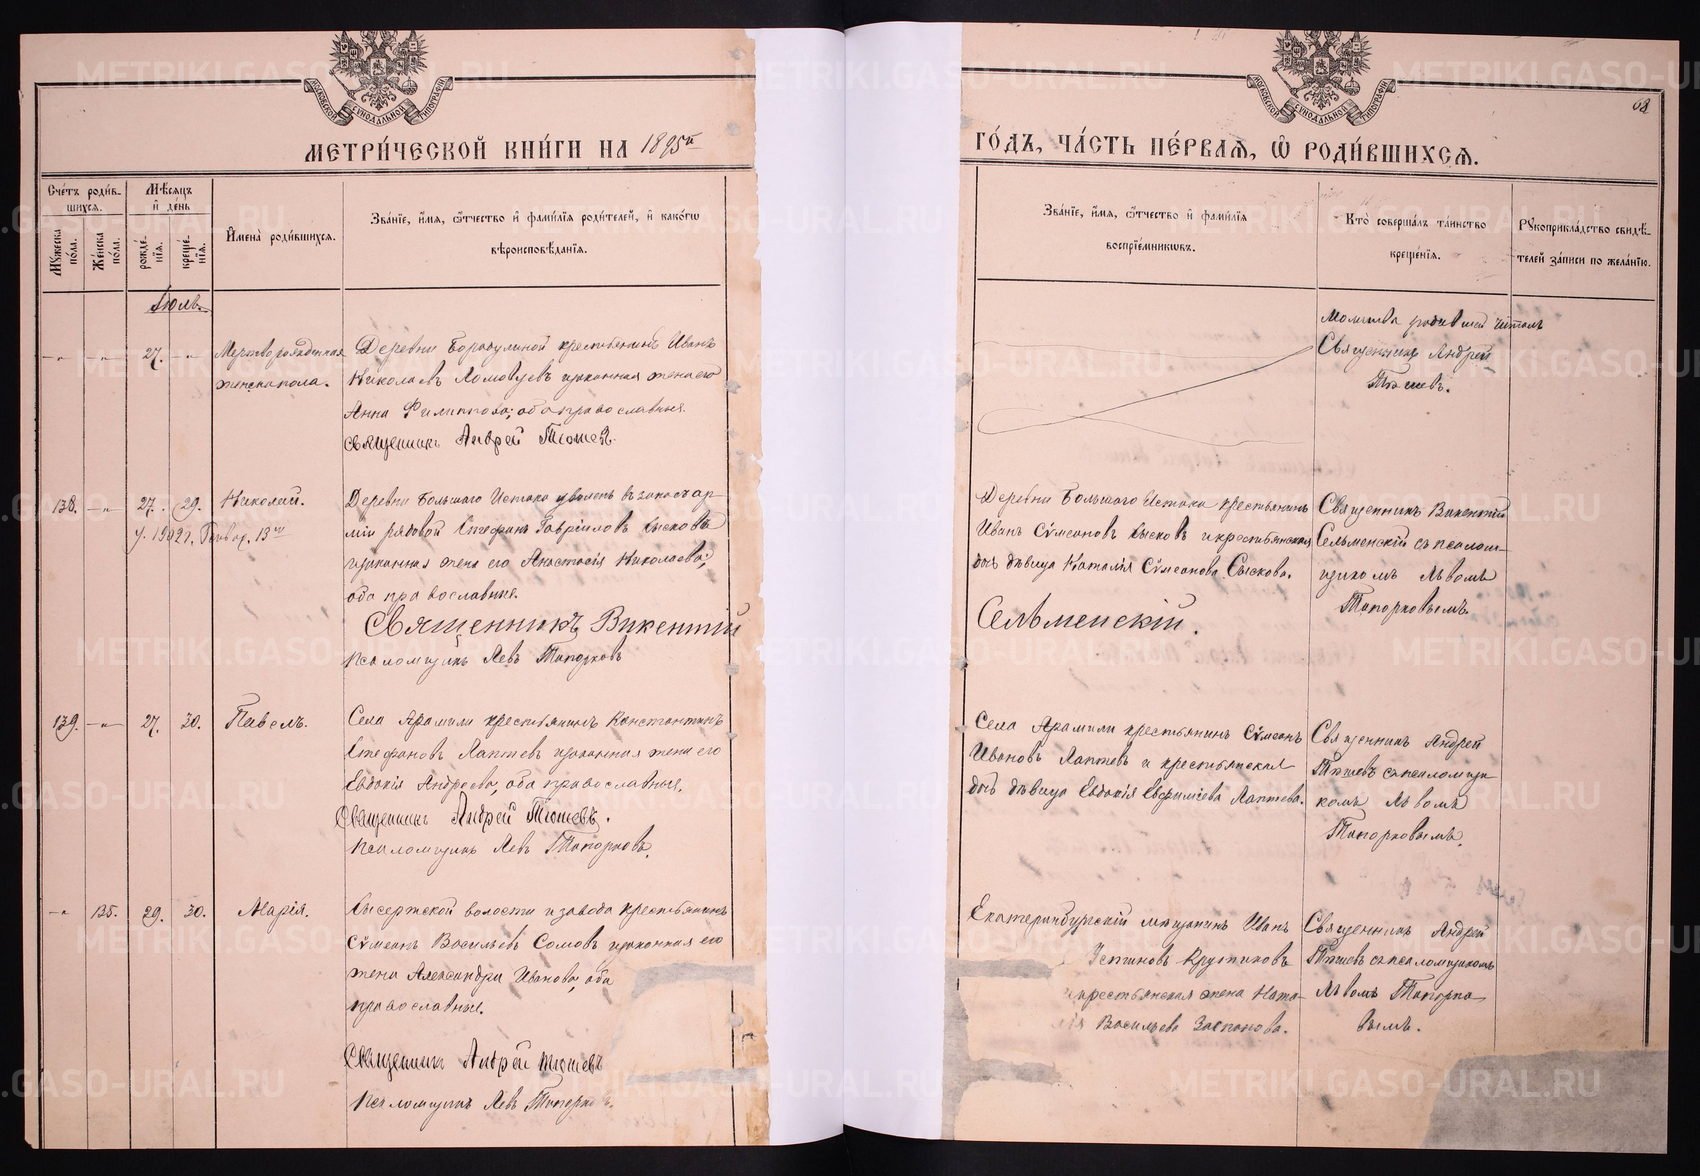 МЕТРИ́ЧЕСКОЙ КНИ́ГИ НА 1895й
ГО́ДЪ, ЧА́СТЬ ПЕ́РВАЯ, Ѽ РОДИ́ВШИХСЯ.
68
МОСКОВСКОЙ СѴНОДАЛЬНОЙ ТИПОГРАФІИ
МОСКОВСКОЙ СѴНОДАЛЬНОЙ ТИПОГРАФІИ
Сче́тъ роди́в-
шихся.
Мѣ́сяцъ
и҆ де́нь
Мꙋ́жеска
по́ла.
Же́нска
по́ла.
рожде́-
нїя.
креще́-
нїя.
И҆мена̀ роди́вшихся.
Зва́нїе, и҆́мя, ѻ҆́тчество и҆ фами́лїя роди́телей, и҆ како́гѡ
вѣроисповѣ́данїя.
Зва́нїе, и҆́мя, ѻ҆́тчество и҆ фами́лїя
воспрїе́мникѡвъ.
Кто̀ соверша́лъ та́инство
креще́нїя.
Рꙋкоприкла́дство свидѣ́-
телей за́писи по жела́нїю.
Іюль.
-„- -„- 27. -„- Мертворожденная
женска пола.
Деревни Бородулиной крестьянинъ Иванъ
Николаевъ Ломовцевъ и законная жена его
Анна Филиппова; оба православные.
Священникъ Андрей Тюшевъ.
Молитва родившей читалъ
Священникъ Андрей
Тюшевъ.
138. -„- 27. 29. Николай.
У. 1942 г. Январ. 13го
Деревни Большаго Истока уволенъ въ запасъ ар-
міи рядовой Стефанъ Гавріиловъ Сысковъ
и законная жена его Анастасія Николаева;
оба православные.
Священникъ Викентій
Сельменскій.
Псаломщикъ Левъ Топорковъ
Деревни Большаго Истока крестьянинъ
Иванъ Сѵмеоновъ Сысковъ и крестьянская
дочь дѣвица Наталія Сѵмеонова Сыскова.
Священникъ Викентій
Сельменскій съ псалом-
щикомъ Львомъ
Топорковымъ.
139. -„- 27. 30. Павелъ.
Села Арамили крестьянинъ Константинъ
Стефановъ Лаптевъ и законная жена его
Евдокія Андреева, оба православные.
Священникъ Андрей Тюшевъ.
Псаломщикъ Левъ Топорковъ.
Села Арамили крестьянинъ Сѵмеонъ
Ивановъ Лаптевъ и крестьянская
дочь дѣвица Евдокія Евфиміева Лаптева.
Священникъ Андрей
Тюшевъ съ псаломщи-
комъ Львомъ
Топорковымъ.
-„- 135. 29. 30. Марія.
Сысертской волости и завода крестьянинъ
Сѵмеонъ Васильевъ Сомовъ и законная его
жена Александра Иванова, оба
православные.
Священникъ Андрей Тюшевъ
Псаломщикъ Левъ Топорков
Екатеринбургскій мѣщанинъ Иванъ
Устиновъ Крутиковъ
и крестьянская жена Ната-
лія Васильева
Священникъ Андрей
Тюшевъ съ псаломщикомъ
Львомъ Топорко-
вымъ.
METRIKI.GASO-URAL.RU